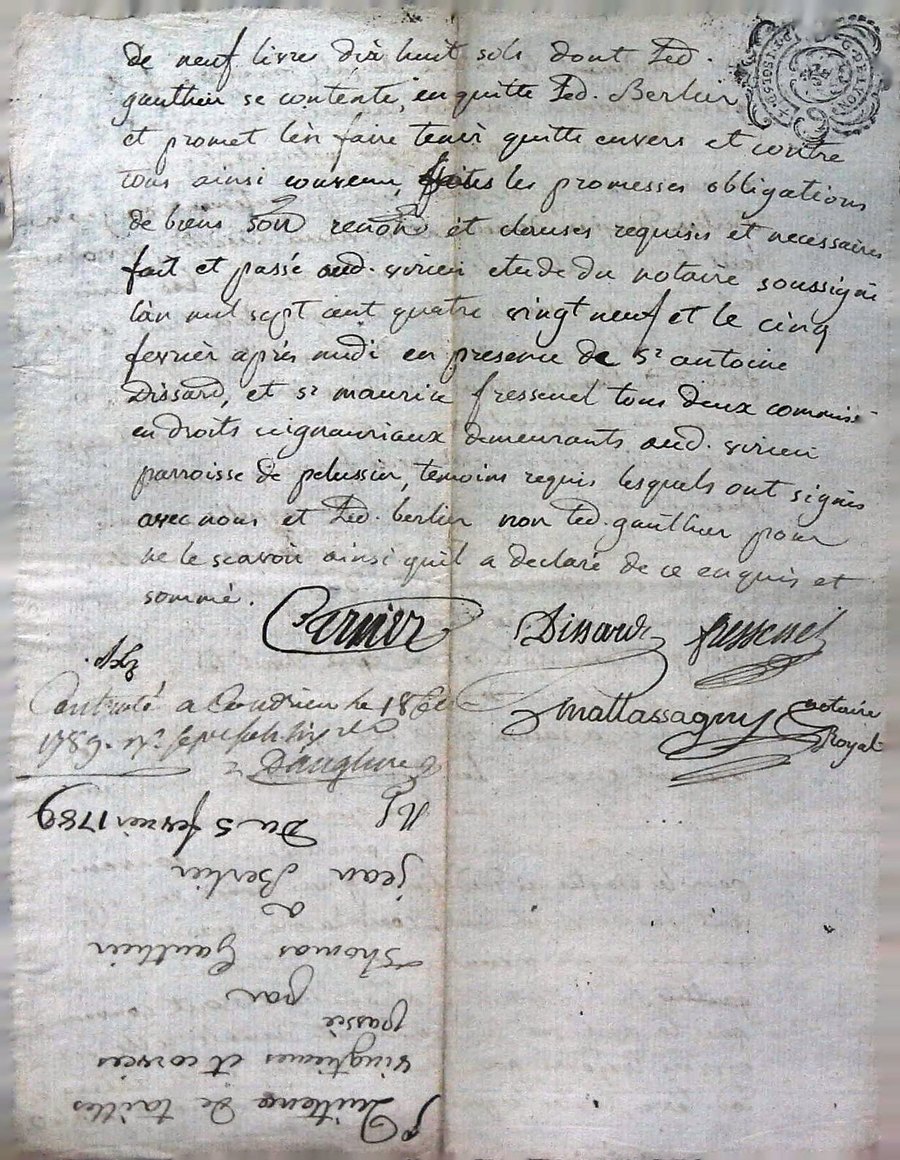 de neuf livres dix huit sols dont Led.
gauthier se contente, en quitte Led. Berlier
et promet l'en faire tenir quitte envers et contre
tous ainsi convenu, faites les promesses obligations
de biens renon et clauses requises et necessaires
fait et passé aud. virieu etude du notaire soussigné
l'an mil sept cent quatre vingt neuf et le cinq
fevrier après midi en presence de Sr antoine
Dissard, et Sr maurice fressenel tous deux commiss
en droits seigneuriaux demeurants aud. virieu
parroisse de pelussin, temoins requis lesquels ont signés
avec nous et Led. berlier non Led. gauthier pour
ne le scavoir ainsi qu'il a declaré de ce enquis et
sommé.
Dissard fressenel
mattassagny notaire
Royal
Controlé a Condrieu le 18
1789.
G. DE LYON
Quittance de tailles
vingtiemes et corvées
passée
par
thomas Gauthier
a
jean Berlier
Du 5 fevrier 1789